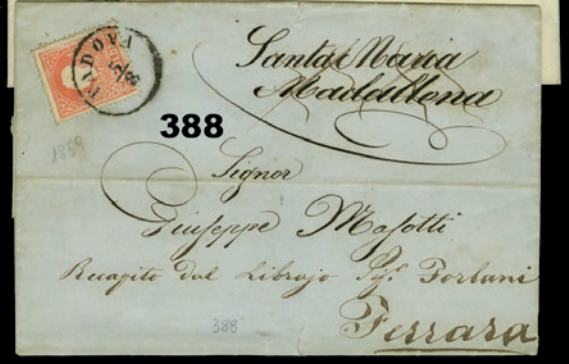 PADOVA
Santa Maria
Madallena
388
1859
Signor
Giuseppe Masotti
Recapito dal Librajo Sig. Forlani
388
Ferrara